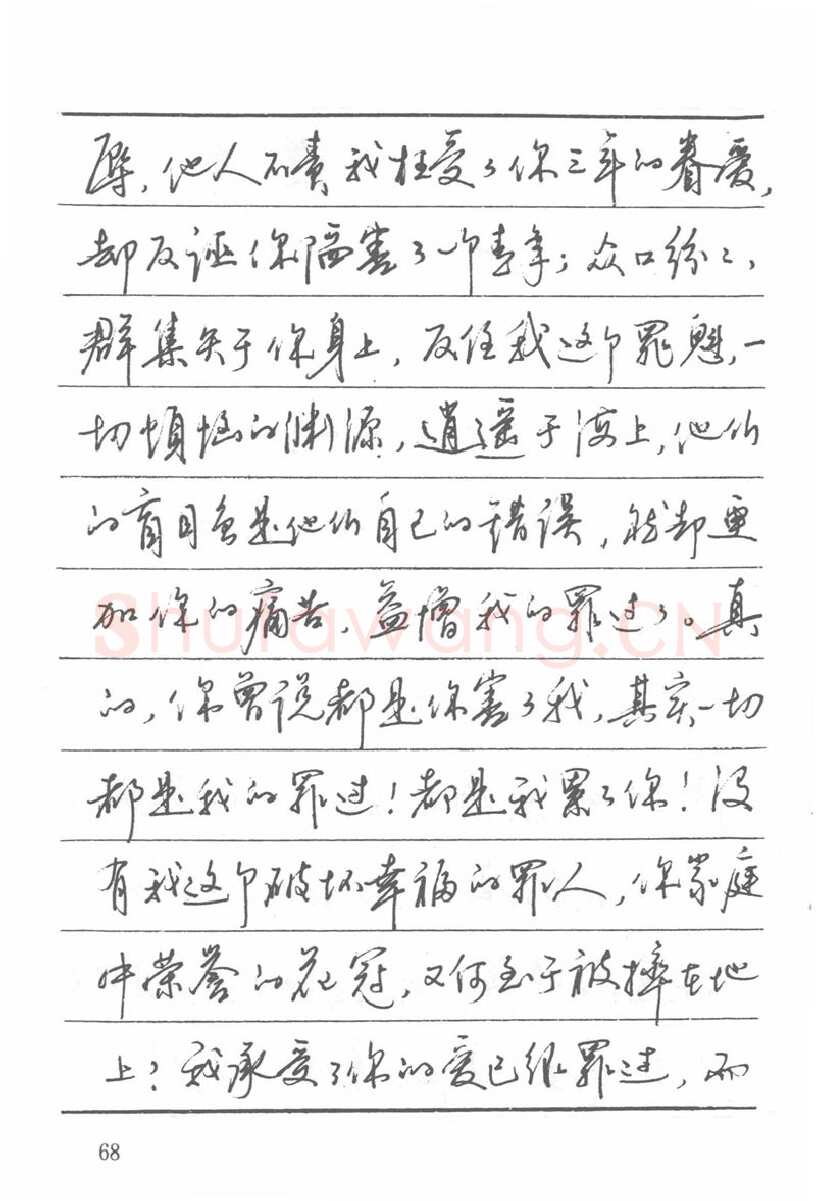 孽,他人不责我枉受了你三年的眷爱,
却反诬你陷害了个青年;众口纷纷,
群集矢于你身上,反任我这个罪魁,一
切烦恼的渊源,逍遥于海上,他们
的盲目负是他们自己的错误,然却更
加你的痛苦,益增我的罪过了。真
的,你曾说都是你害了我,其实一切
都是我的罪过!都是我累了你!没
有我这个破坏幸福的罪人,你家庭
中荣誉的花冠,又何至于被摔在地
上?我承受了你的爱已经罪过,而
Shufawang.CN
68